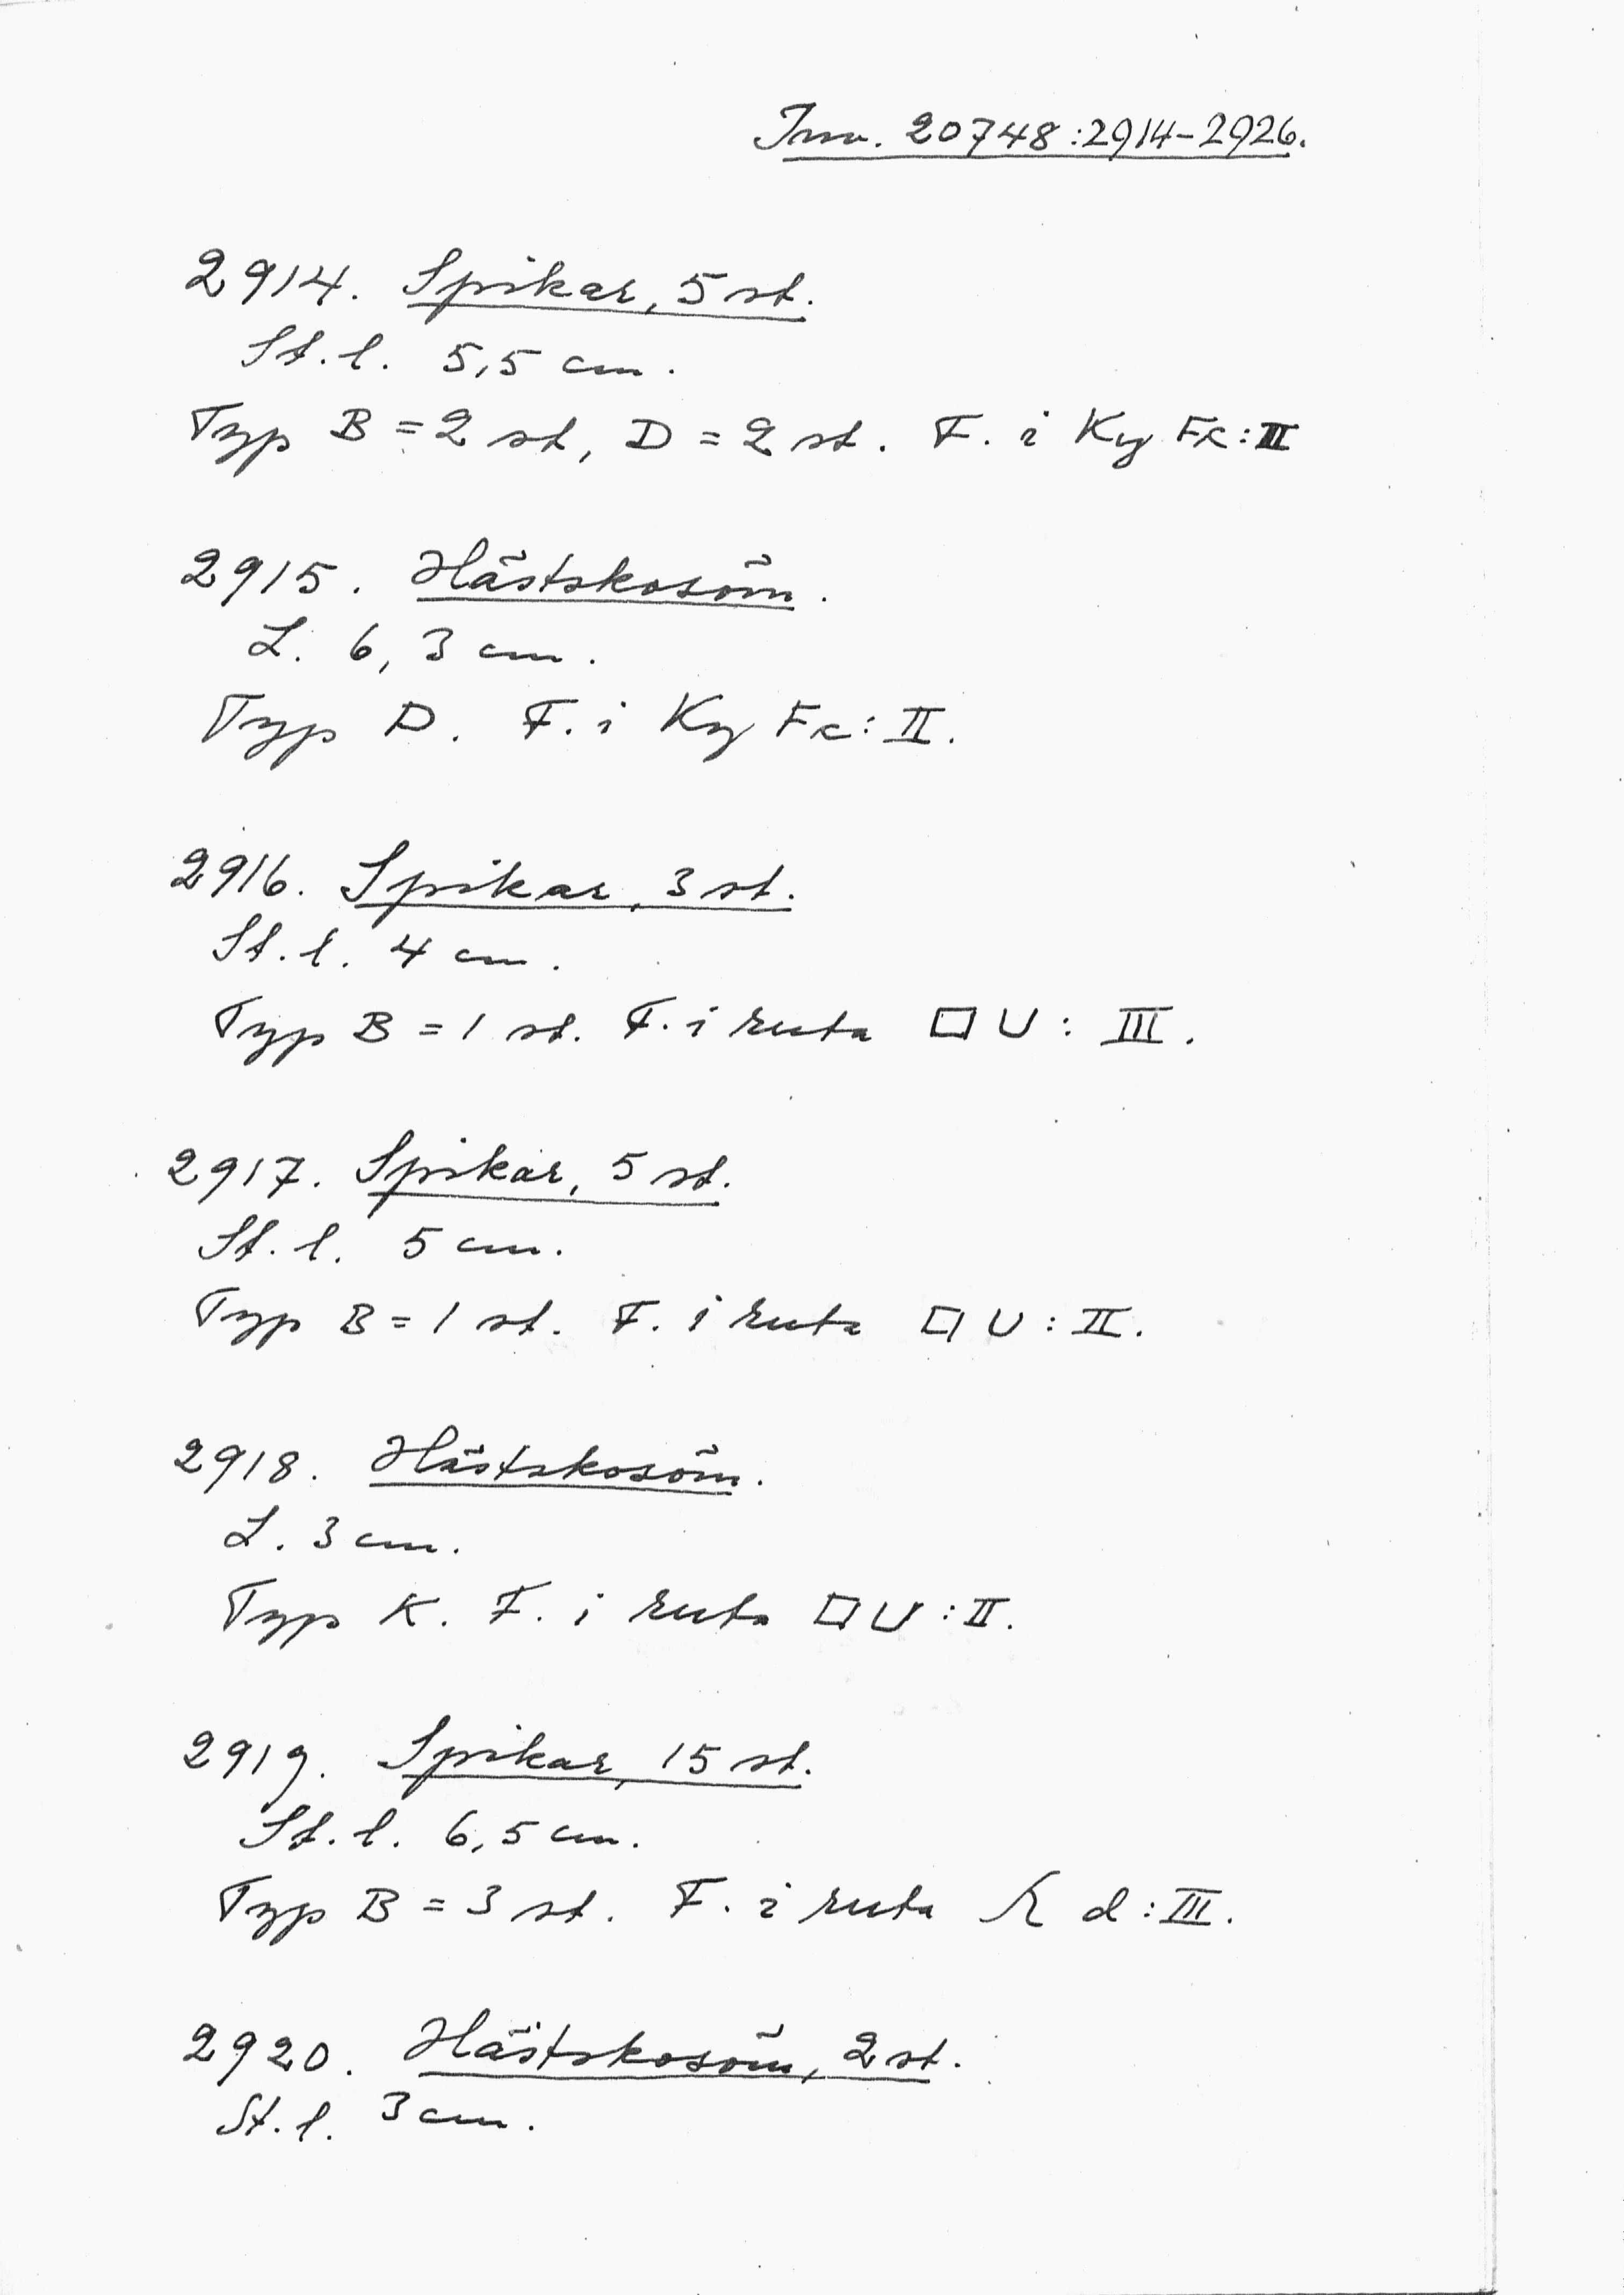 Inv. 20748:2914-2926.
2914. Spikar, 5 st.
St.l. 5,5 cm.
Typ B = 2 st, D = 2 st. F. i Ky Fk:II
2915. Hästskosöm.
L. 6,3 cm.
Typ D. F. i Ky Fk:II.
2916. Spikar, 3 st.
St.l. 4 cm.
Typ B = 1 st. F. i ruta □ U: III.
2917. Spikar, 5 st.
St.l. 5 cm.
Typ B = 1 st. F. i ruta □ U: II.
2918. Hästskosöm.
L. 3 cm.
Typ K. F. i ruta □ U: II.
2919. Spikar, 15 st.
St.l. 6,5 cm.
Typ B = 3 st. F. i ruta d: III.
2920. Hästskosöm, 2 st.
St.l. 3 cm.